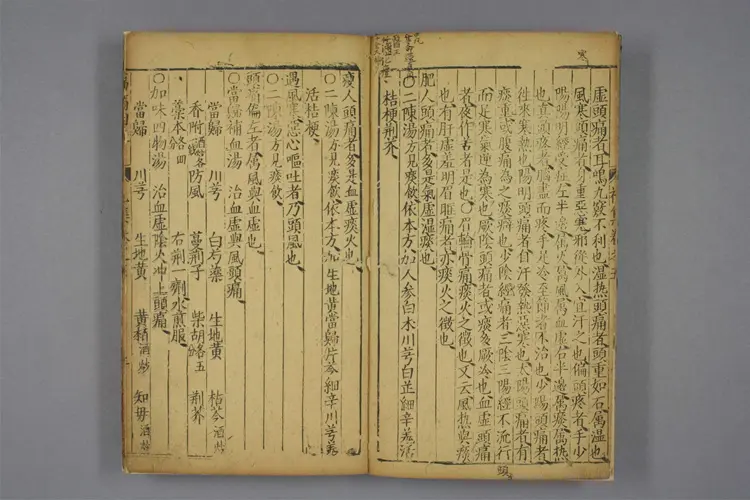 虛頭痛者耳鳴九竅不利也濕熱頭痛者頭重如石屬濕也
風寒頭痛者身重惡寒邪從外入宜汗之也偏頭疼者手少
陽陽明經受症左半邊屬火屬風屬血虛右半邊屬痰屬熱
也真頭疼者腦盡而疼手足冷至節者不治也少陽頭痛者
徃來寒熱也陽明頭痛者自汗發熱惡寒也太陽頭痛者有
痰重或腹痛為之痰癖也少陰經痛者三陰三陽經不流行
而足寒氣逆為寒也厥陰頭痛者或痰多厥冷也血虛頭痛
者夜作苦者是也○眉輪骨痛痰火之徵也又云風熱與痰
也有肝虛羞明眉眶痛者亦痰火之徵也
肥人頭痛者多是氣虛濕痰也
○二陳湯方見痰飲依本方加人參白朮川芎白芷細辛羗活
桔梗荊芥
瘦人頭痛者多是血虛痰火也
○二陳湯方見痰飲依本方加生地黃當歸片芩細辛川芎羗
活桔梗
遇風寒惡心嘔吐者乃頭風也
○二陳湯方見痰飲
頭痛偏左者屬風與血虛也
○當歸補血湯 治血虛與風頭痛
當歸 川芎 白芍藥 生地黃 枯芩酒炒
香附酒炒各 防風 蔓荊子 柴胡各五 荊芥
藁本各四 右剉一劑水煎服
○加味四物湯 治血虛陰火冲上頭痛
當歸 川芎 生地黃 黃栢酒炒 知母酒炒